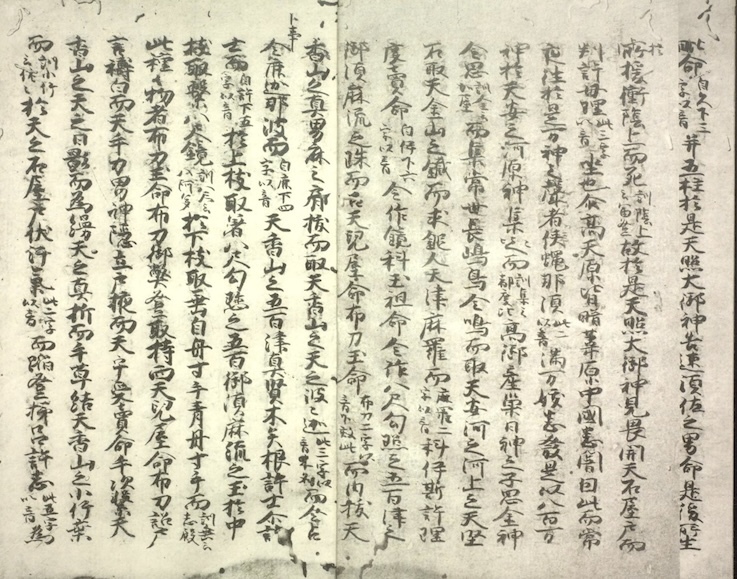 此命 自久下三字以音 并五柱於是天照大御神告速須佐之男命是後所生
於梭衝陰上而死 訓陰上云富登 故於是天照大御神見畏開天石屋戸而
刺許母理 此三字以音 坐也尒高天原皆暗葦原中國悉闇因此而常
夜往於是万神之聲者狭蝿那須 此二字以音 満万妖悉發是以八百万
神於天安之河原神集々而 訓集云都度比 高御産巣日神之子思金神
令思 訓金云加尼 而集常世長鳴鳥令鳴而取天安河之河上之天堅
石取天金山之鐵而求鍛人天津麻羅而 麻羅二字以音 科伊斯許理
度賣命 自伊下六字以音 令作鏡科玉祖命令作八尺勾璁之五百津之
御須麻流之珠而召天兒屋命布刀玉命 布刀二字以音下效此 而内抜天
香山之真男鹿之肩抜而取天香山之天之波々迦 此三字以音木名 而令占
合麻迦那波而 自麻下四字以音 天香山之五百津真賢木矣根許士尒許
士而 自許下五字以音 於上枝取著八尺勾璁之五百御須麻流之玉於中
枝取繫八尺鏡 訓八尺云八阿多 於下枝取垂白丹寸手青丹寸手而 訓垂云志殿
此種々物者布刀玉命布刀御幣登取持而天兒屋命布刀詔戸
言禱白而天手力男神隠立戸掖而天宇受賣命手次繫天
香山之天之日影而為縵天之真拆而手草結天香山之小竹葉
而 訓小竹云佐々 於天之石屋戸伏汙氣 此二字以音 而蹈登杼呂許志 此五字以音 為